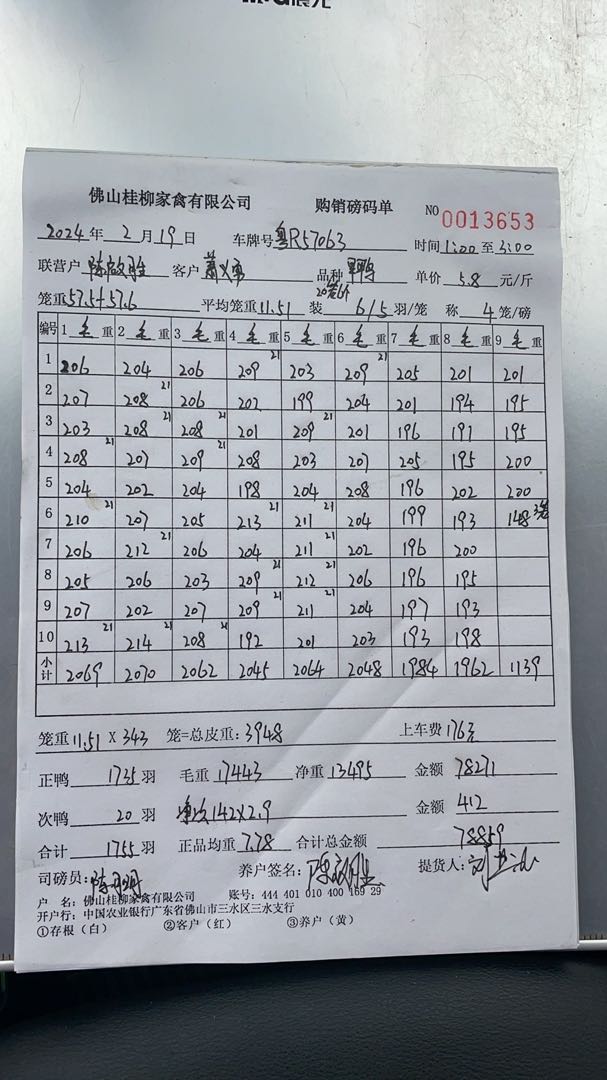 佛山桂柳家禽有限公司 购销磅码单 NO 0013653
2024年 2月19日 车牌号 粤R57063 时间 1:00 至 3:00
联营户 客户 品种 单价 5.8 元/斤
笼重 57.5+57.6 平均笼重 11.51 装 6/5 羽/笼 称 4 笼/磅
编号 1 毛 重 2 毛 重 3 毛 重 4 毛 重 5 毛 重 6 毛 重 7 毛 重 8 毛 重 9 毛 重
1 206 204 206 209 21 203 209 21 205 201 201
2 207 208 21 206 202 199 204 201 194 195
3 203 208 21 208 21 201 209 21 201 196 191 195
4 208 21 207 209 21 208 203 207 205 195 200
5 204 202 204 198 204 208 196 202 200
6 210 21 207 205 213 21 211 21 204 199 193 148 3笼
7 206 212 21 206 204 211 21 202 196 200
8 205 206 203 209 21 212 21 206 196 195
9 207 202 207 209 21 211 21 204 197 193
10 213 21 214 21 208 21 192 201 203 193 198
小计 2069 2070 2062 2045 2064 2048 1984 1962 1139
笼重 11.51 X 343 笼=总皮重: 3948 上车费 1763
正鸭 1735 羽 毛重 17443 净重 13495 金额 78271
次鸭 20 羽 142×2.9 金额 412
合计 1755 羽 正品均重 7.78 合计总金额 78859
司磅员: 养户签名: 提货人:
户 名: 佛山桂柳家禽有限公司 账号: 444 401 010 400 169 29
开户行: 中国农业银行广东省佛山市三水区三水支行
①存根（白） ②客户（红） ③养户（黄）